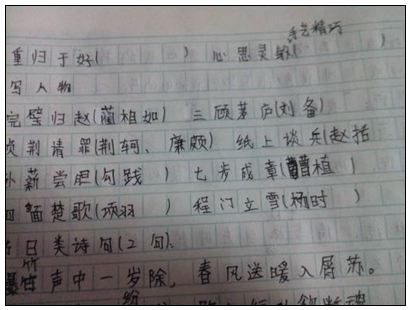 手艺精巧
重归于好( ) 心思灵敏( )
写人物
完璧归赵(蔺相如) 三顾茅庐(刘备)
荆清罪(荆轲、廉颇) 纸上谈兵(赵括
薪尝胆(勾践) 七步成章(曹植)
面楚歌(项羽) 程门立雪(杨时)
日类诗句(2句)、
竹声中一岁除，春风送暖入屠苏。
纷 欲断魂